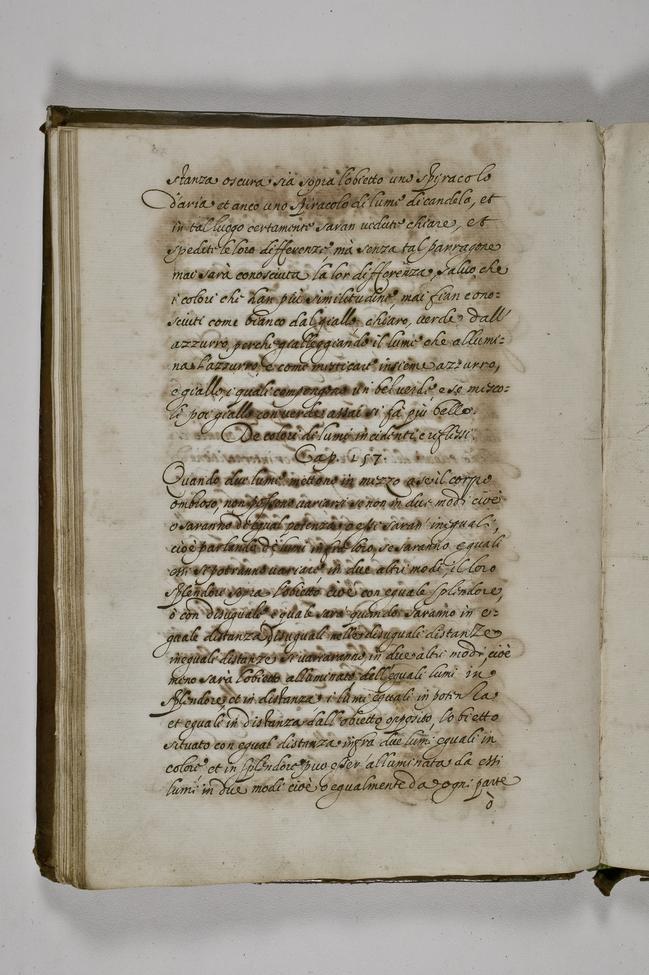 stanza oscura sia sopra l'obietto uno spiracolo
d'aria et anco uno spiracolo di lume di candela, et
in tal luogo certamente saran vedute chiare, et
spedite le loro differenze, mà senza tal parragone
mai sarà conosciuta la lor differenza, salvo che
i colori che han più similitudine, mai fian cono=
sciuti come bianco dal giallo chiaro, verde dall'
azzurro, perche gialleggiando il lume che allumi=
na l'azzurro, è come misticare insieme azzurro,
e giallo, i quali compongono un bel verde e se misco=
li poi giallo con verde assai si fà più bello.
De colori di lumi incidenti e riflessi.
Cap. 157
Quando due lumi mettono in mezzo a se il corpo
ombroso, non possono variarsi se non in due modi cioè
o saranno di equal potenza o essi saran inequali,
cioè parlando de lumi infra loro, se saranno equali
essi si potranno variare in due altri modi, il loro
splendore sopra l'obietto cioè con equale splendore,
ò con disuguale equale sarà quando saranno in e=
guale distanza disuguali nelle disuguali distanze
inequali distanze si variaranno in due altri modi, cioè
meno sarà l'obietto alluminato dell'equali lumi in
splendore et in distanza i lumi equali in potenza
et equali in distanza dall'obietto opposito, lo bietto
situato con equal distanza infra due lumi equali in
colore et in splendore puo esser alluminato da essi
lumi in due modi cioè o egualmente da ogni parte
ò